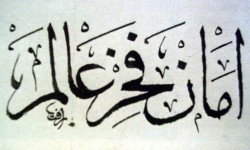 امان فخر عالم